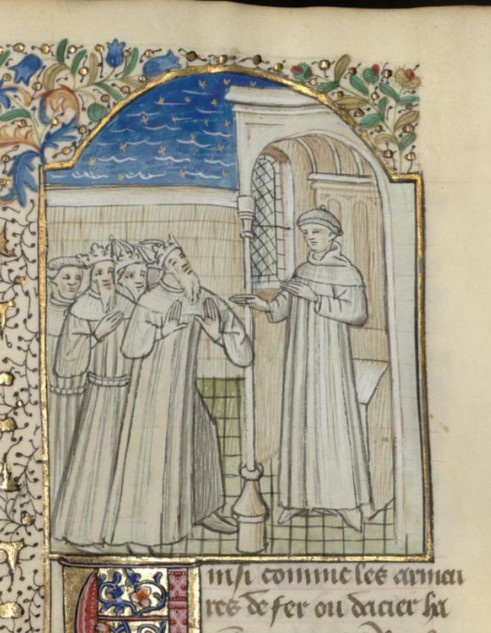 Ainsi comme les armeu
res de fer ou dacier ha